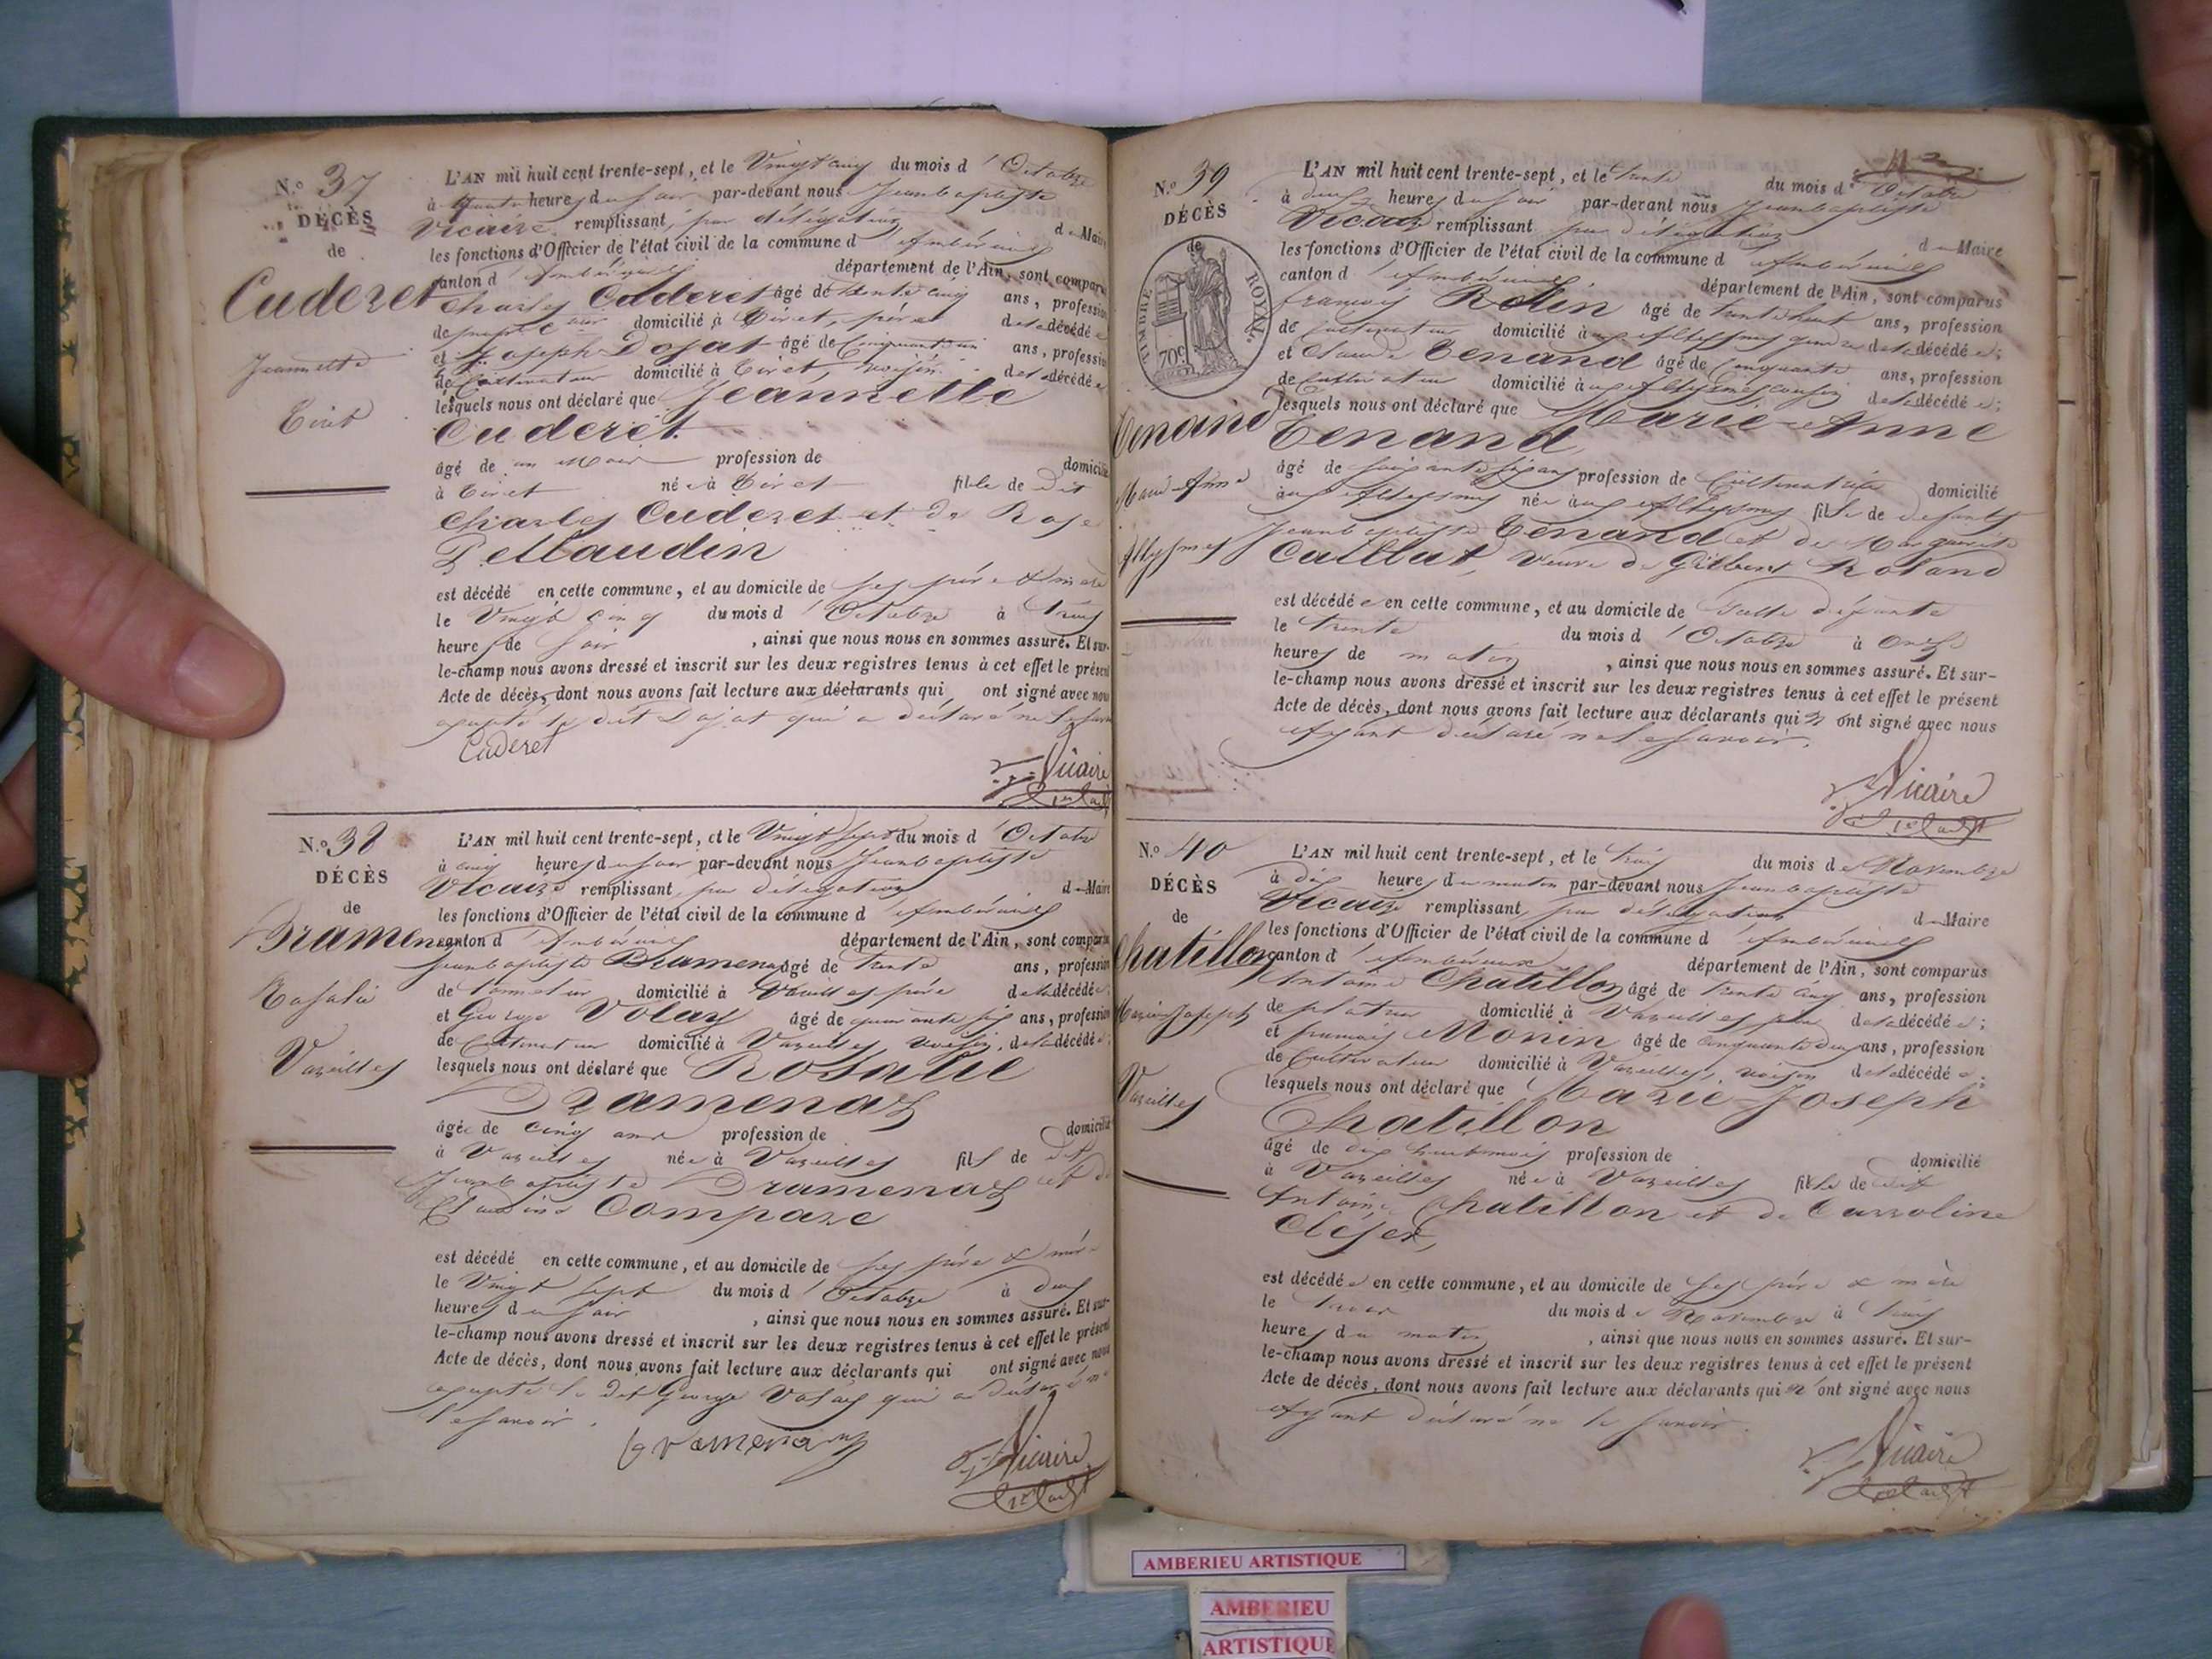 N.º 37
DÉCÈS
de
Cuderet
Jeannette
Tiret
L'AN mil huit cent trente-sept, et le Vingt cinq du mois d'Octobre
à quatre heures du soir par-devant nous Jean baptiste
Vicaire remplissant par délégation du Maire
les fonctions d'Officier de l'état civil de la commune d'Ambérieux
canton d'Ambérieux département de l'Ain, sont comparus
Charles Cuderet âgé de trente cinq ans, profession
de domicilié à Tiret, père de la décédée
et Joseph Dojat âgé de Cinquante un ans, profession
de Cultivateur domicilié à Tiret, voisin de la décédée
lesquels nous ont déclaré que Jeannette
Cuderet
âgé de un mois profession de domicilié
à Tiret née à Tiret fille de dit
Charles Cuderet et de Rose
Pellaudin
est décédé en cette commune, et au domicile de ses père & mère
le Vingt cinq du mois d'Octobre à trois
heures de soir, ainsi que nous nous en sommes assuré. Et sur-
le-champ nous avons dressé et inscrit sur les deux registres tenus à cet effet le présent
Acte de décès, dont nous avons fait lecture aux déclarants qui ont signé avec nous
excepté le dit Dojat qui a déclaré ne le savoir
Cuderet
Vicaire
N.º 38
DÉCÈS
de
Bramenaz
Rosalie
Vareilles
L'AN mil huit cent trente-sept, et le Vingt sept du mois d'Octobre
à cinq heures du soir par-devant nous Jean baptiste
Vicaire remplissant par délégation du Maire
les fonctions d'Officier de l'état civil de la commune d'Ambérieux
canton d'Ambérieux département de l'Ain, sont comparus
Jean baptiste Bramenaz âgé de trente ans, profession
de domicilié à Vareilles père de la décédée
et George Volay âgé de quarante six ans, profession
de Cultivateur domicilié à Vareilles, voisin, de la décédée;
lesquels nous ont déclaré que Rosalie
Bramenaz
âgée de cinq ans profession de domicilié
à Vareilles née à Vareilles fils de dit
Jean baptiste Bramenaz et de
Claudine Compare
est décédé en cette commune, et au domicile de ses père & mère
le Vingt sept du mois d'Octobre à deux
heures du soir, ainsi que nous nous en sommes assuré. Et sur-
le-champ nous avons dressé et inscrit sur les deux registres tenus à cet effet le présent
Acte de décès, dont nous avons fait lecture aux déclarants qui ont signé avec nous
excepté le dit George Volay qui a déclaré ne
le savoir.
Bramenaz
Vicaire
N.º 39
DÉCÈS
de
TIMBRE ROYAL
70c
Tenand
Marie Anne
L'AN mil huit cent trente-sept, et le trente du mois d'Octobre
à deux heures du soir par-devant nous Jean baptiste
Vicaire remplissant par délégation du Maire
les fonctions d'Officier de l'état civil de la commune d'Ambérieux
canton d'Ambérieux département de l'Ain, sont comparus
françois Rolin âgé de trente huit ans, profession
de Cultivateur domicilié aux Allymes gendre de la décédée;
et Claude Tenand âgé de Cinquante ans, profession
de Cultivateur domicilié aux Allymes cousin de la décédée;
lesquels nous ont déclaré que Marie-Anne
Tenand
âgé de soixante six ans profession de Cultivatrice domicilié
aux Allymes née aux Allymes fille de défunts
Jean baptiste Tenand et de Marguerite
Caillat, veuve de Gilbert Roland
est décédée en cette commune, et au domicile de la dite défunte
le trente du mois d'Octobre à onze
heures de matin, ainsi que nous nous en sommes assuré. Et sur-
le-champ nous avons dressé et inscrit sur les deux registres tenus à cet effet le présent
Acte de décès, dont nous avons fait lecture aux déclarants qui n'ont signé avec nous
Ayant déclaré ne le savoir.
Vicaire
N.º 40
DÉCÈS
de
Chatillon
Marie Joseph
Vareilles
L'AN mil huit cent trente-sept, et le trois du mois de Novembre
à dix heures du matin par-devant nous Jean baptiste
Vicaire remplissant par délégation du Maire
les fonctions d'Officier de l'état civil de la commune d'Ambérieux
canton d'Ambérieux département de l'Ain, sont comparus
Antoine Chatillon âgé de trente cinq ans, profession
de domicilié à Vareilles père de la décédée;
et françois Monin âgé de cinquante deux ans, profession
de Cultivateur domicilié à Vareilles, voisin de la décédée;
lesquels nous ont déclaré que Marie-Joseph
Chatillon
âgé de dix huit mois profession de domicilié
à Vareilles née à Vareilles fille de dit
Antoine Chatillon et de Carroline
est décédée en cette commune, et au domicile de ses père & mère
le trois du mois de Novembre à trois
heures du matin, ainsi que nous nous en sommes assuré. Et sur-
le-champ nous avons dressé et inscrit sur les deux registres tenus à cet effet le présent
Acte de décès, dont nous avons fait lecture aux déclarants qui n'ont signé avec nous
Ayant déclaré ne le savoir.
Vicaire
AMBERIEU ARTISTIQUE
AMBERIEU
ARTISTIQUE